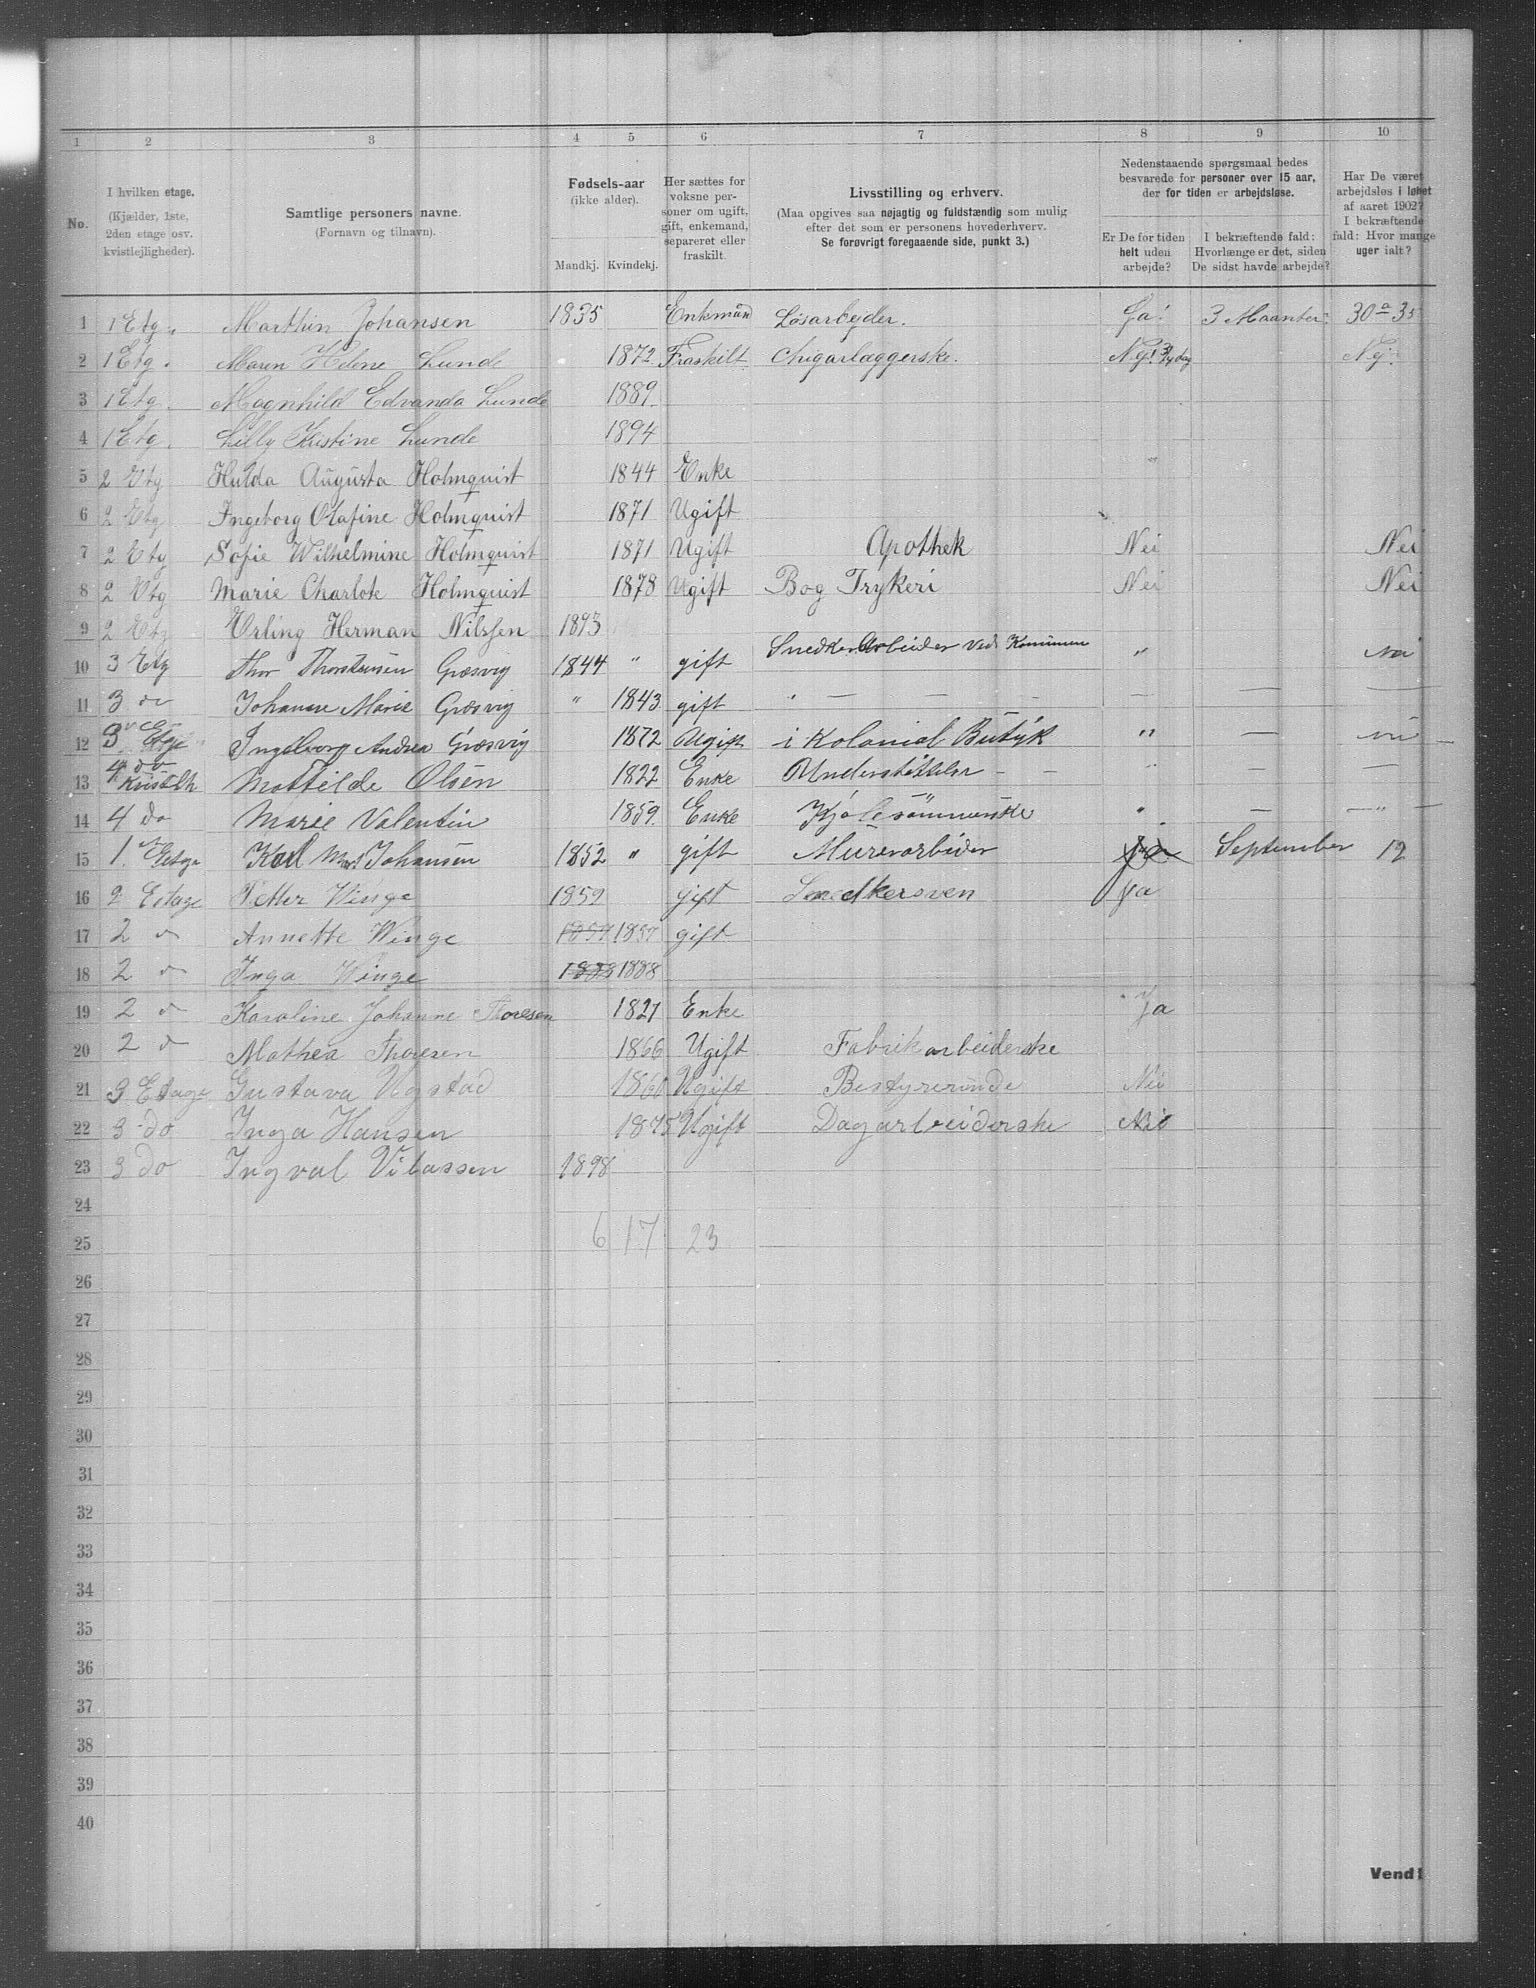 1 2 3 4 5 6 7 8 9 10
No.
I hvilken etage. (Kjælder, 1ste, 2den etage osv. kvistlejligheder).
Samtlige personers navne. (Fornavn og tilnavn).
Fødsels-aar (ikke alder). Mandkj. Kvindekj.
Her sættes for voksne personer om ugift, gift, enkemand, separeret eller fraskilt.
Livsstilling og erhverv. (Maa opgives saa nøjagtig og fuldstændig som mulig efter det som er personens hovederhverv. Se forøvrigt foregaaende side, punkt 3.)
Nedenstaaende spørgsmaal bedes besvarede for personer over 15 aar, der for tiden er arbejdsløse.
Er De for tiden helt uden arbejde?
I bekræftende fald: Hvorlænge er det, siden De sidst havde arbejde?
Har De været arbejdsløs i løbet af aaret 1902? I bekræftende fald: Hvor mange uger ialt?
1 1 Etg. Marthin Johansen 1835 Enkmand Løsarbejder. Ja! 3 Maanter. 30 a 35
2 1 Etg. Maren Helene Lunde 1872 Fraskilt Chigarlæggerske. Nej! 3/4 dag Nej.
3 1 Etg. Magnhild Edvanda Lunde 1889
4 1 Etg. Lilly Kristine Lunde 1894
5 2 Etg Hulda Augusta Holmquist 1844 Enke "
6 2 Etg Ingeborg Olafine Holmquist 1871 Ugift
7 2 Etg Sofie Wilhelmine Holmquist 1871 Ugift Apothek Nei Nei
8 2 Etg Marie Charlote Holmquist 1878 Ugift Bog Trykeri Nei Nei
9 2 Etg Erling Herman Nilssen 1893
10 3 Etg Thor Thorstensen Græsvig 1844 " gift Snedker Arbeider ved Kommunen " nei
11 3 do Johanne Marie Græsvig " 1843 gift " — — — — — —
12 3 Etge Ingeborg Andrea Græsvig 1872 Ugift i Kolonial Butik " — nei
13 4 do Kvisteth Mathilde Olsen 1822 Enke Understøttelse - - " —
14 4 do Marie Valentin 1859 Enke Kjolesømmerske " — — " —
15 1 Etage Karl Mart Johansen 1852 " gift Murerarbeider Ja September 12
16 2 Etage Petter Winge 1859 gift Snedkersven Ja
17 2 do Annette Winge 1857 1857 gift
18 2 do Inga Winge 1888 1888
19 2 do Karoline Johanne Thoresen 1821 Enke Ja
20 2 do Mathea Thoresen 1866 Ugift Fabrikarbeiderske
21 3 Etage Gustava Ugstad 1860 Ugift Bestyrerinde Nei
22 3 do Inga Hansen 1875 Ugift Dagarbeiderske Nei
23 3 do Ingval Vilassen 1898
24
25 6 17 23
26
27
28
29
30
31
32
33
34
35
36
37
38
39
40
Vend!